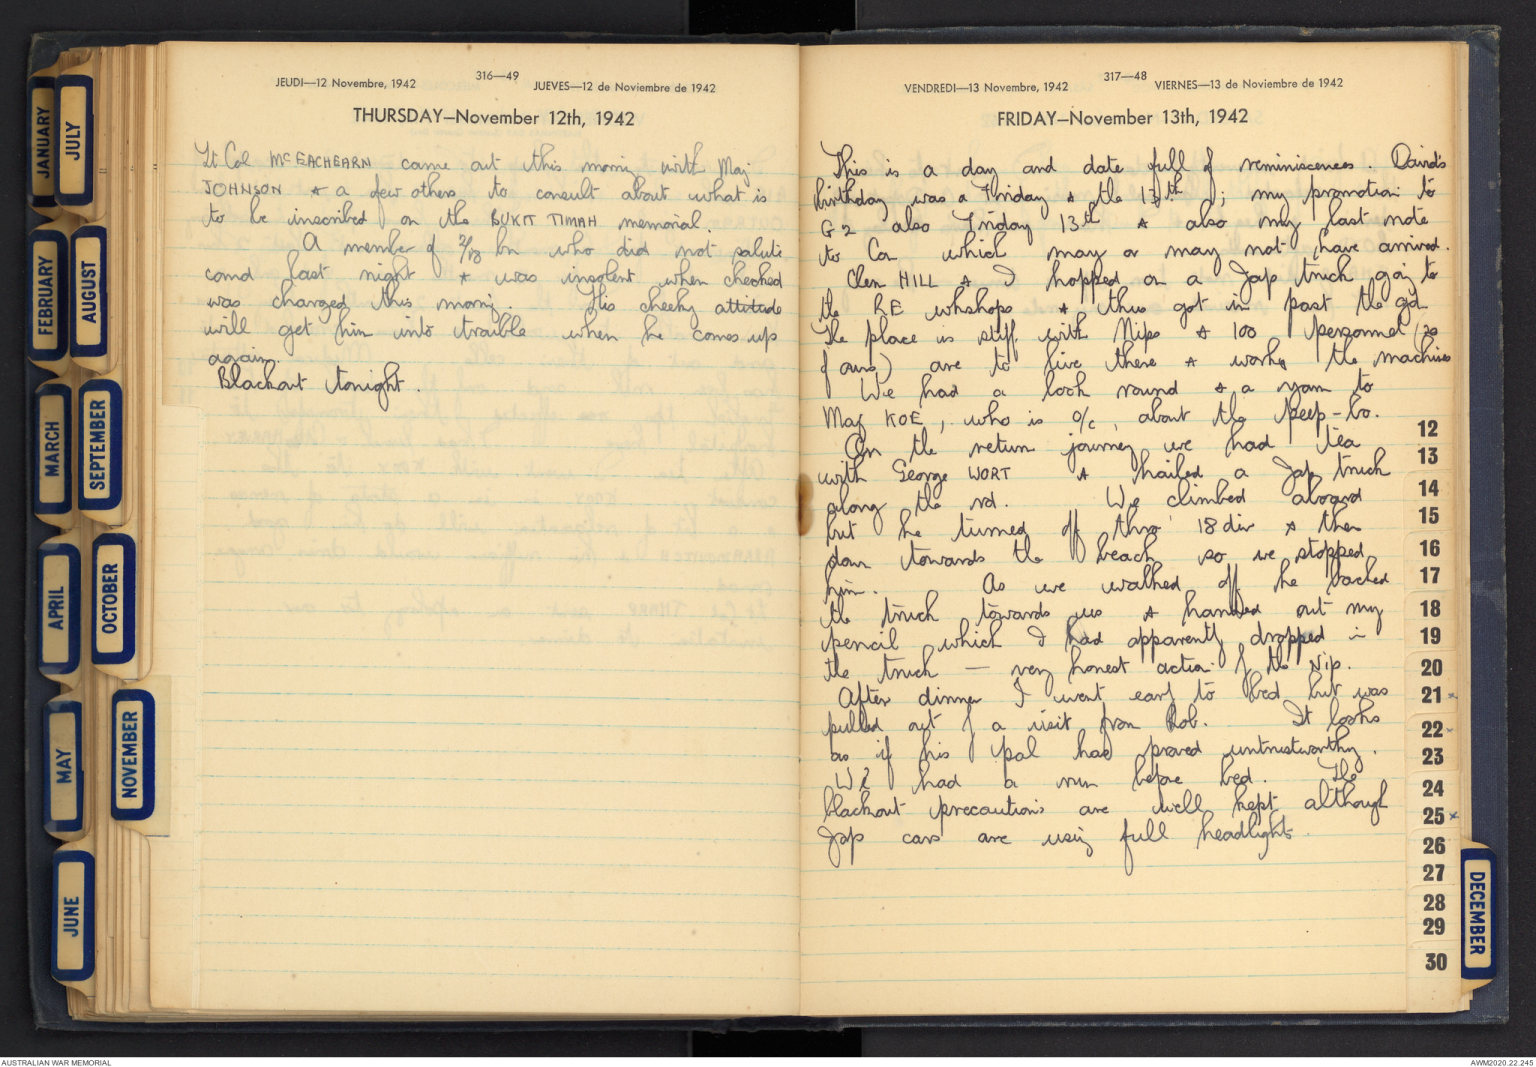 JEUDI—12 Novembre, 1942
316—49
JUEVES—12 de Noviembre de 1942
THURSDAY—November 12th, 1942
Lt Col McEACHEARN came out this morning with Maj
JOHNSON & a few others to consult about what is
to be inscribed on the BUKIT TIMAH memorial.
A member of bn who did not salute
comd last night & was insolent when checked
was charged this morning. His cheeky attitude
will get him into trouble when he comes up
again.
Blackout tonight.
VENDREDI—13 Novembre, 1942
317—48
VIERNES—13 de Noviembre de 1942
FRIDAY—November 13th, 1942
This is a day and date full of reminiscences. David's
birthday was a Friday & the 13th; my promotion to
G2 also Friday 13th & also my last note
to Con which may or may not have arrived.
Clem HILL & I hopped on a Jap truck going to
the RE wkshops & thus got in past the gd.
The place is stiff with Nips & 100 personnel (20
of ours) are to live there & work the machines
We had a look round & a yarn to
Maj KOE, who is o/c, about the peep-bo.
On the return journey we had tea
with George WORT & hailed a Jap truck
along the rd. We climbed aboard
but he turned off thro' 18 div & then
down towards the beach so we stopped
him. As we walked off he backed
the truck towards us & handed out my
pencil which I had apparently dropped in
the truck — very honest action of the Nip.
After dinner I went early to bed but was
pulled out for a visit from Rob. It looks
as if his pal has proved untrustworthy.
We had a run before bed. The
blackout precautions are well kept although
Jap cars are using full headlights.
JANUARY
JULY
FEBRUARY
AUGUST
MARCH
SEPTEMBER
APRIL
OCTOBER
MAY
NOVEMBER
JUNE
12
13
14
15
16
17
18
19
20
21
22
23
24
25
26
27
28
29
30
DECEMBER
AUSTRALIAN WAR MEMORIAL
AWM2020.22.245